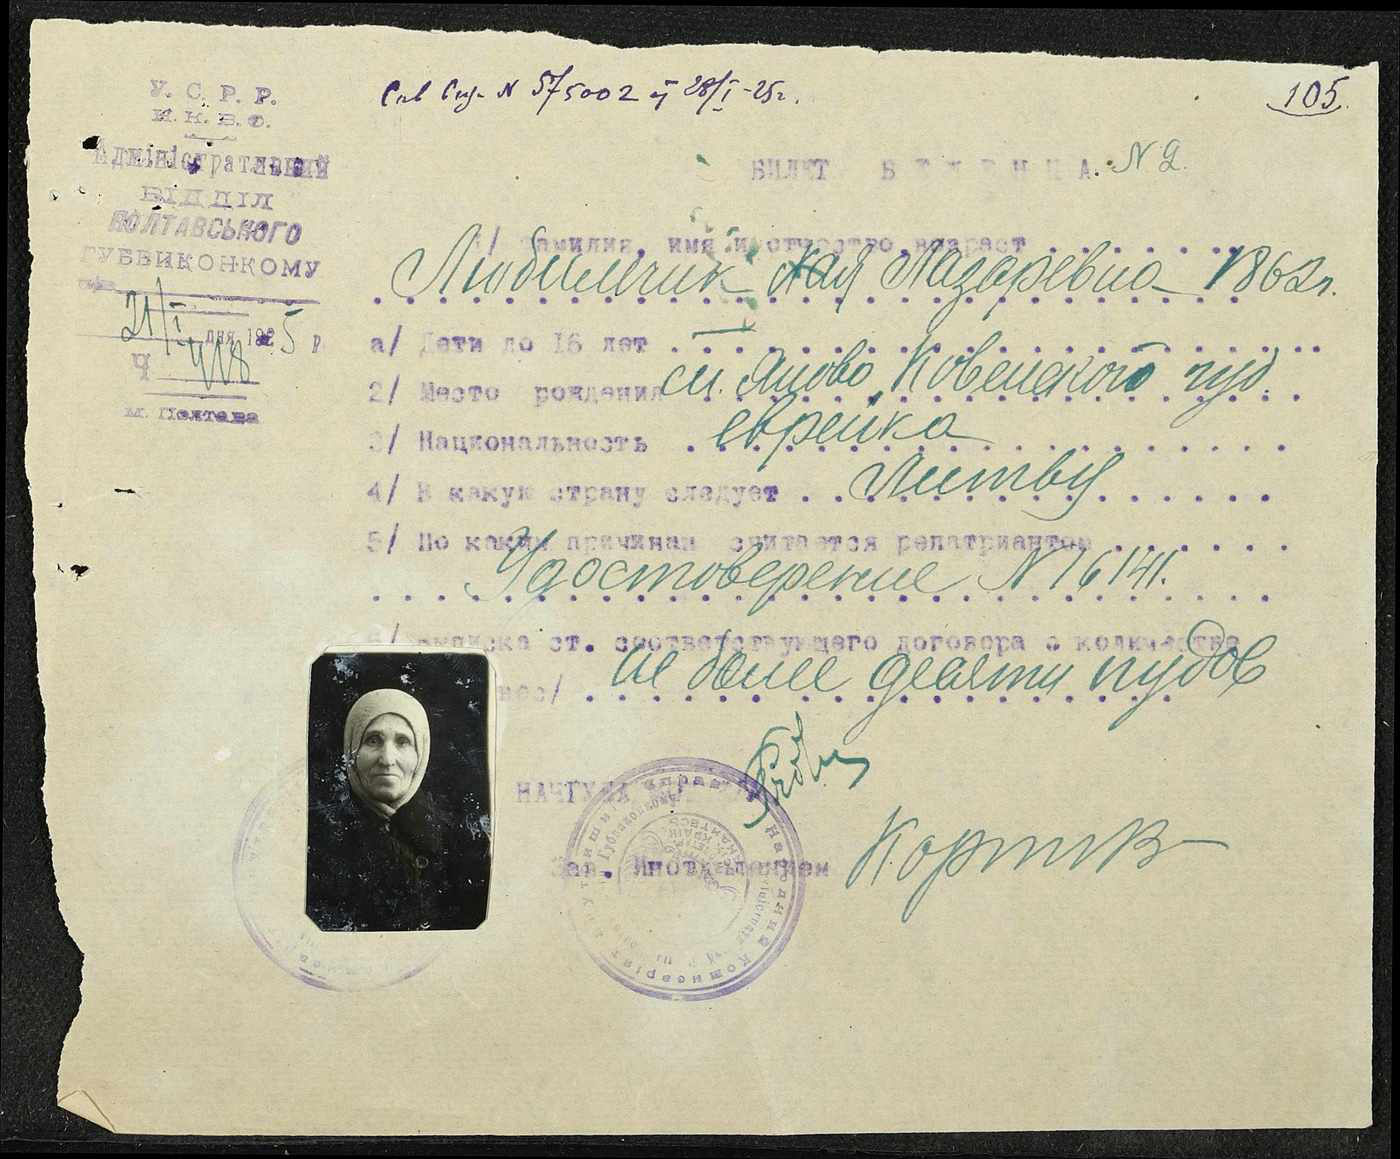 105.
У. С. Р. Р.
Н. К. В. С.
Адміністративний
ВІДДІЛ
ПОЛТАВСЬКОГО
ГУБВИКОНКОМУ
21/I дня 1925 р.
Ч 448
м. Полтава
№ 575002 28/I-25г.
БИЛЕТ БЕЖЕНЦА. № 2.
1/ Фамилия, имя и отчество, возраст
Любимчик Хая Лазаревна 1862г.
а/ Дети до 16 лет —
2/ Место рождения м. Яново, Ковенского губ.
3/ Национальность еврейка
4/ В какую страну следует Литву
5/ По каким причинам считается репатриантом
Удостоверение № 16141.
6/ выписка ст. соответствующего договора о количестве
вес/ не более десяти пудов
НАЧГУБ
Зав. Иноотделением